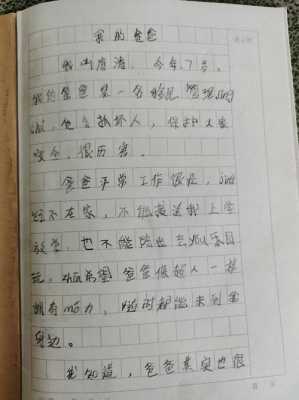 我的爸爸
我叫唐清，今年7岁。
我的爸爸是一名警察
他会抓坏人，保护大家
安全，很厉害。
爸爸平常工作很忙，
经不在家，不能接送我上学
放学，也不能陪出去游乐园
玩，希望爸爸像超人一样
拥有力，随时都能来到我
身边。
我知道，爸爸其实也很